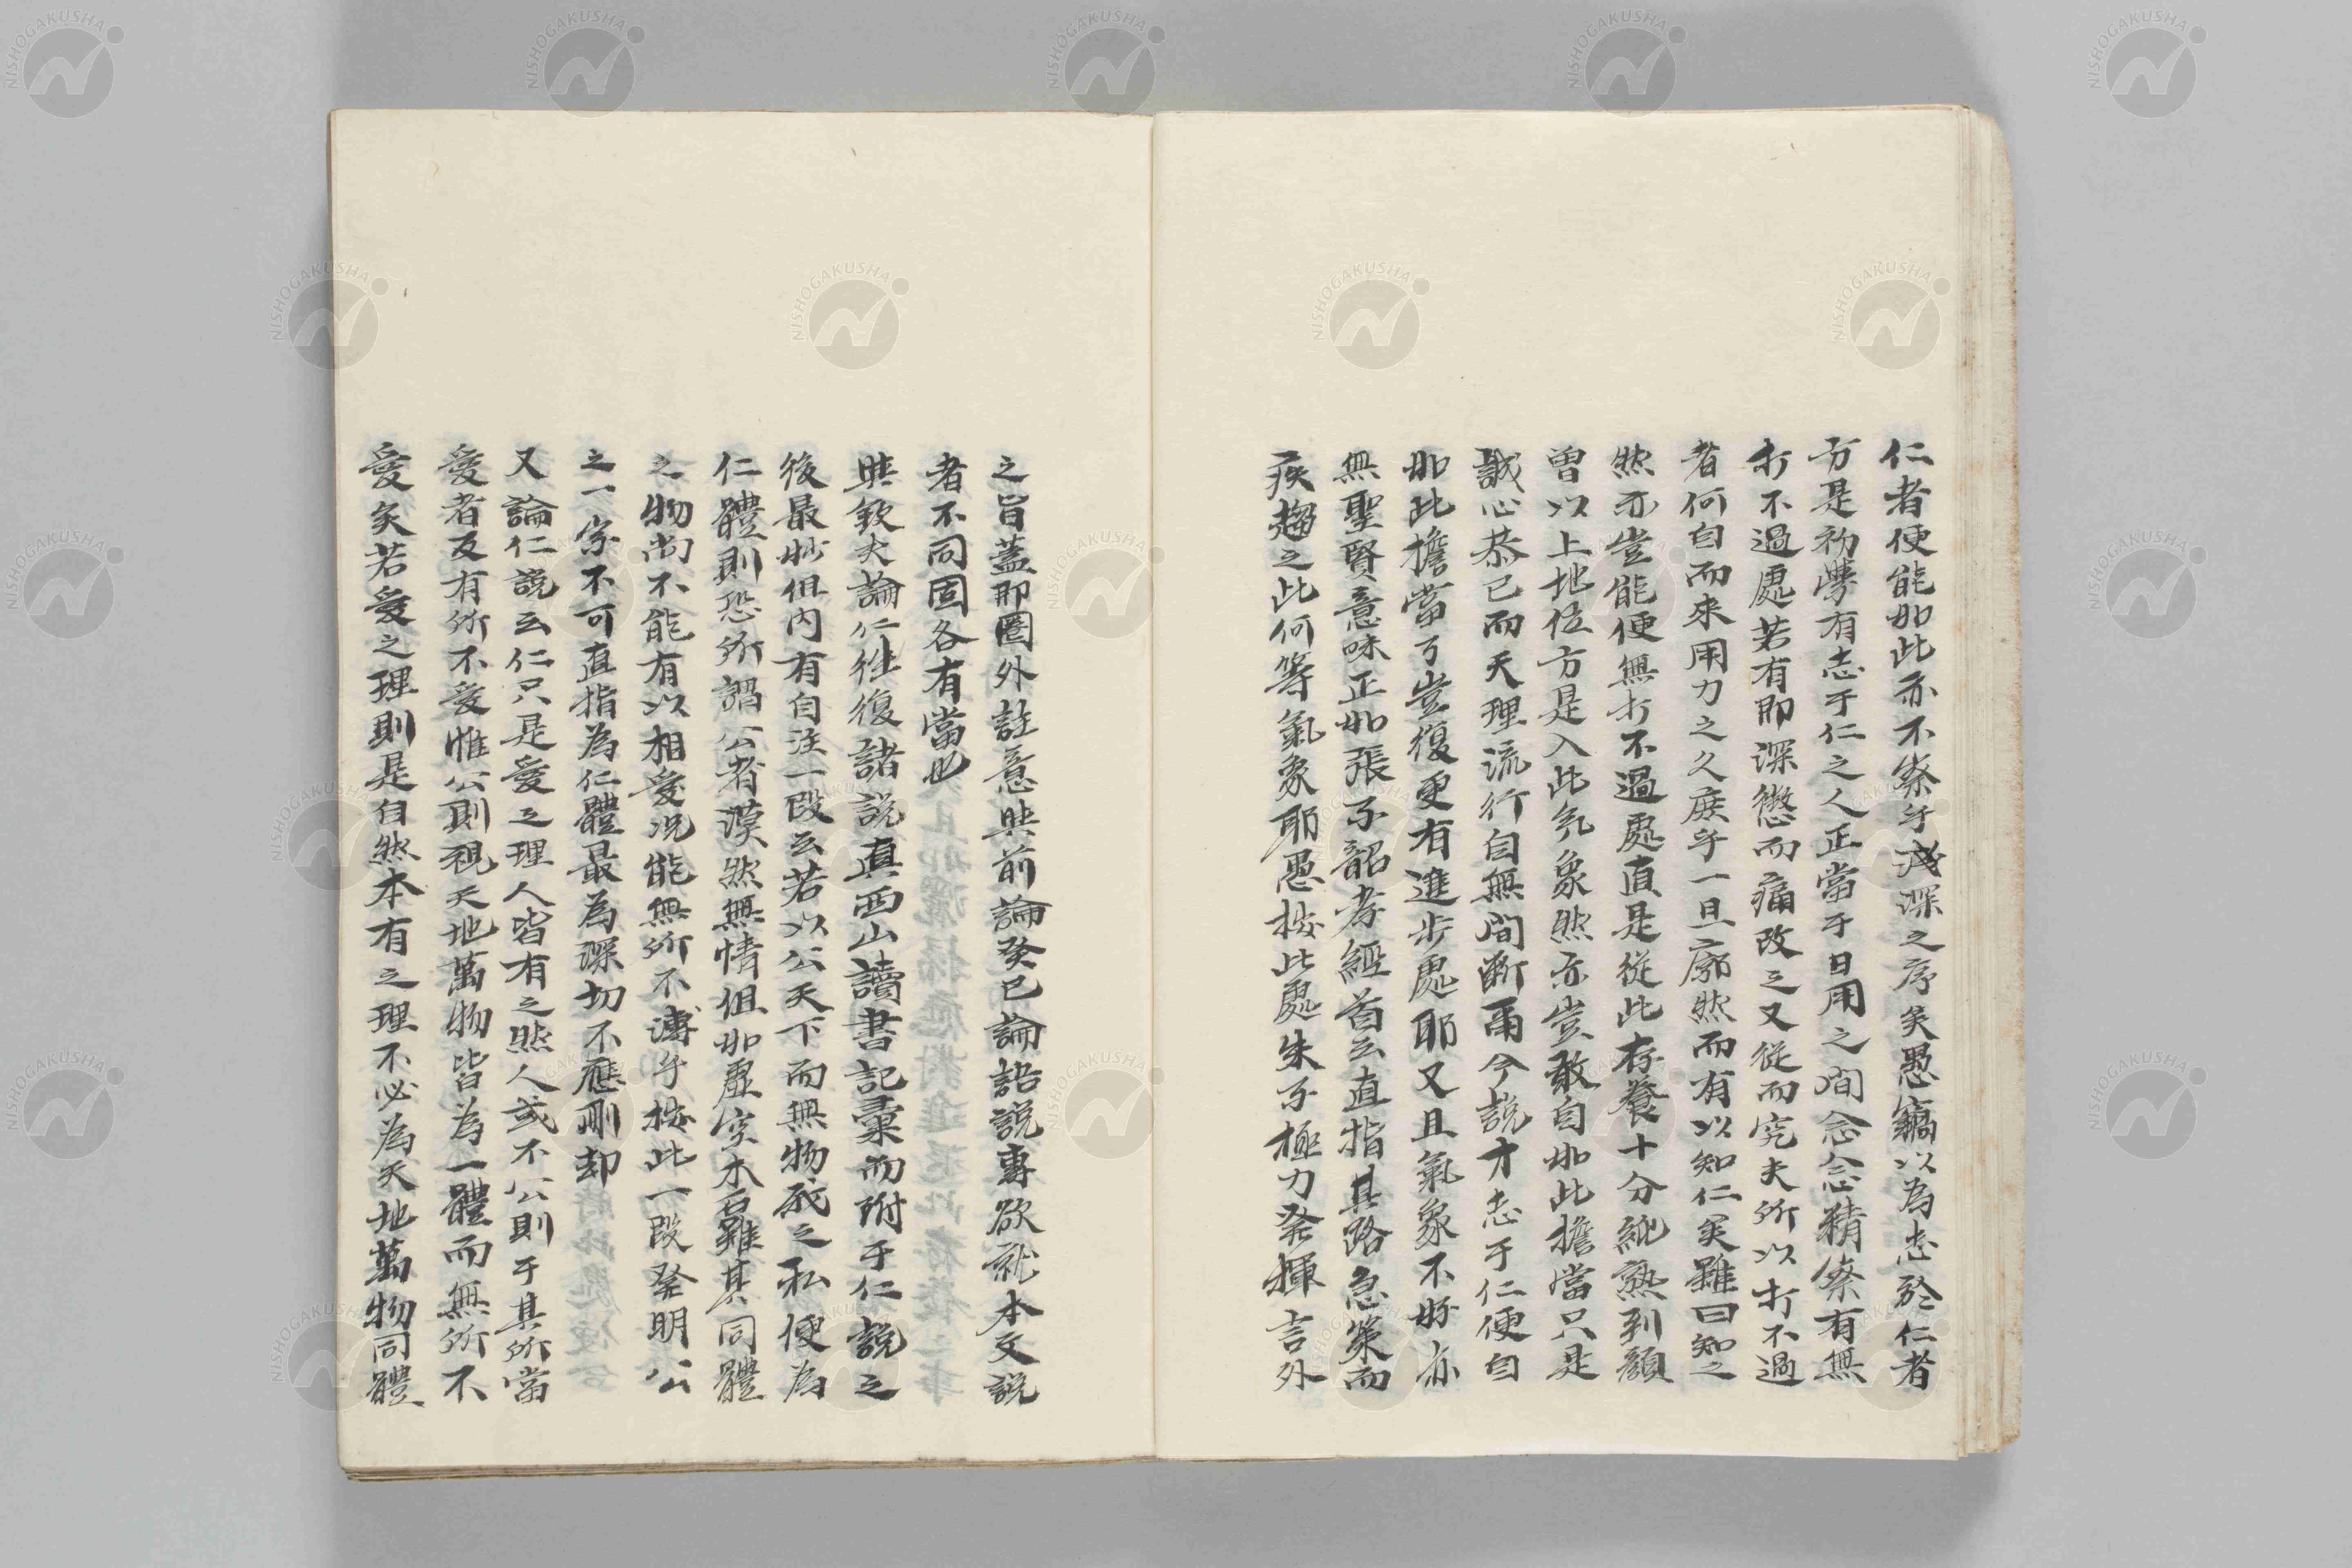 仁者便能如此亦不察乎淺深之序矣愚竊以為志於仁者
方是初學有志于仁之人正當于日用之間念念精察有無
打不過處若有即深懲而痛改之又從而究夫所以打不過
者何自而來用力之久庶乎一旦廓然而有以知仁矣雖曰知之
然亦豈能便無打不過處直是從此存養十分純熟到顏
曾以上地位方是入此氣象然亦豈敢自如此擔當只是
誠心恭己而天理流行自無間斷爾今說才志于仁便自
如此擔當了豈復更有進步處耶又且氣象不好亦
無聖賢意味正如張子韶孝經首云直指其路急策而
疾趨之此何等氣象耶愚按此處朱子極力發揮言外
之旨蓋即圈外註意與前論癸巳論語說專欲就本文說
者不同固各有當也
與欽夫論仁往復諸說真西山讀書記彙而附于仁說之
後最妙但內有自注一段云若以公天下而無物我之私便為
仁體則恐所謂公者漠然無情但如虛空木石雖其同體
之物尚不能有以相愛況能無所不溥乎按此一段發明公
之一字不可直指為仁體最為深切不應刪却
又論仁說云仁只是愛之理人皆有之然人或不公則于其所當
愛者反有所不愛惟公則視天地萬物皆為一體而無所不
愛矣若愛之理則是自然本有之理不必為天地萬物同體
NISHOGAKUSHA